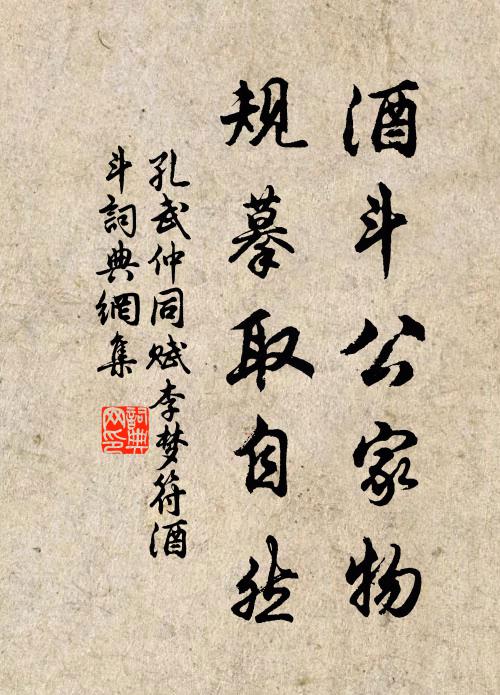 酒斗公家物
規摹取自然
孔武仲同赋李梦符酒
斗詞典網集
詞典
网印